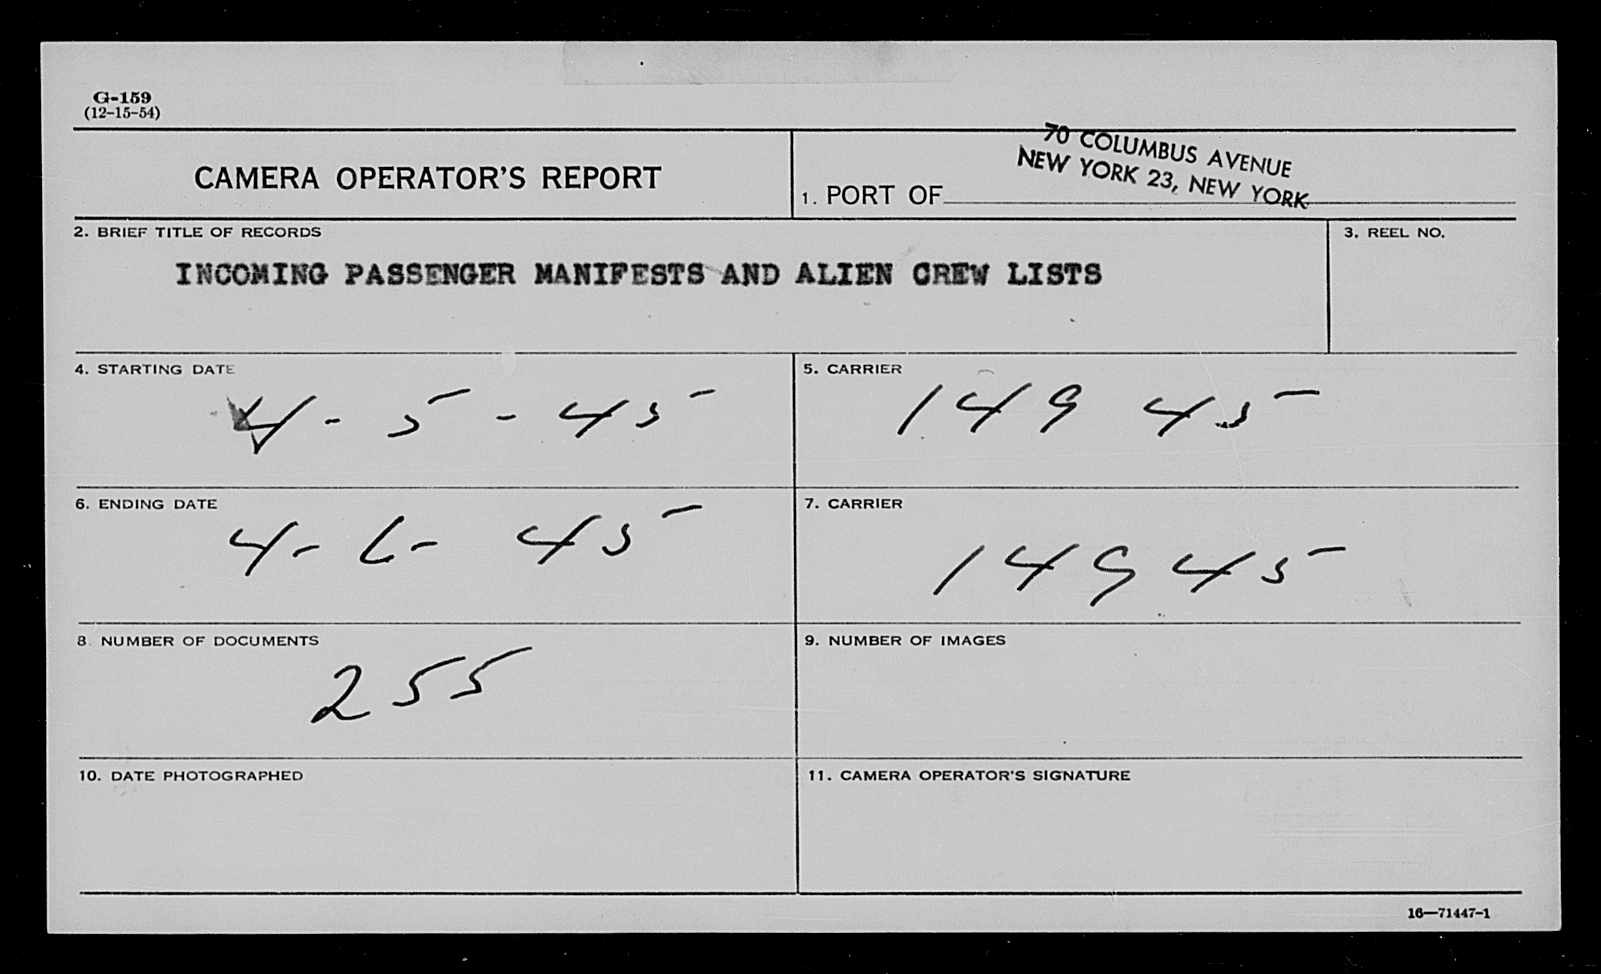 G-159
(12-15-54)
CAMERA OPERATOR'S REPORT
1. PORT OF
70 COLUMBUS AVENUE
NEW YORK 23, NEW YORK
2. BRIEF TITLE OF RECORDS
INCOMING PASSENGER MANIFESTS AND ALIEN CREW LISTS
3. REEL NO.
4. STARTING DATE
4-5-45
5. CARRIER
149 45
6. ENDING DATE
4-6-45
7. CARRIER
14945
8. NUMBER OF DOCUMENTS
255
9. NUMBER OF IMAGES
10. DATE PHOTOGRAPHED
11. CAMERA OPERATOR'S SIGNATURE
16—71447-1